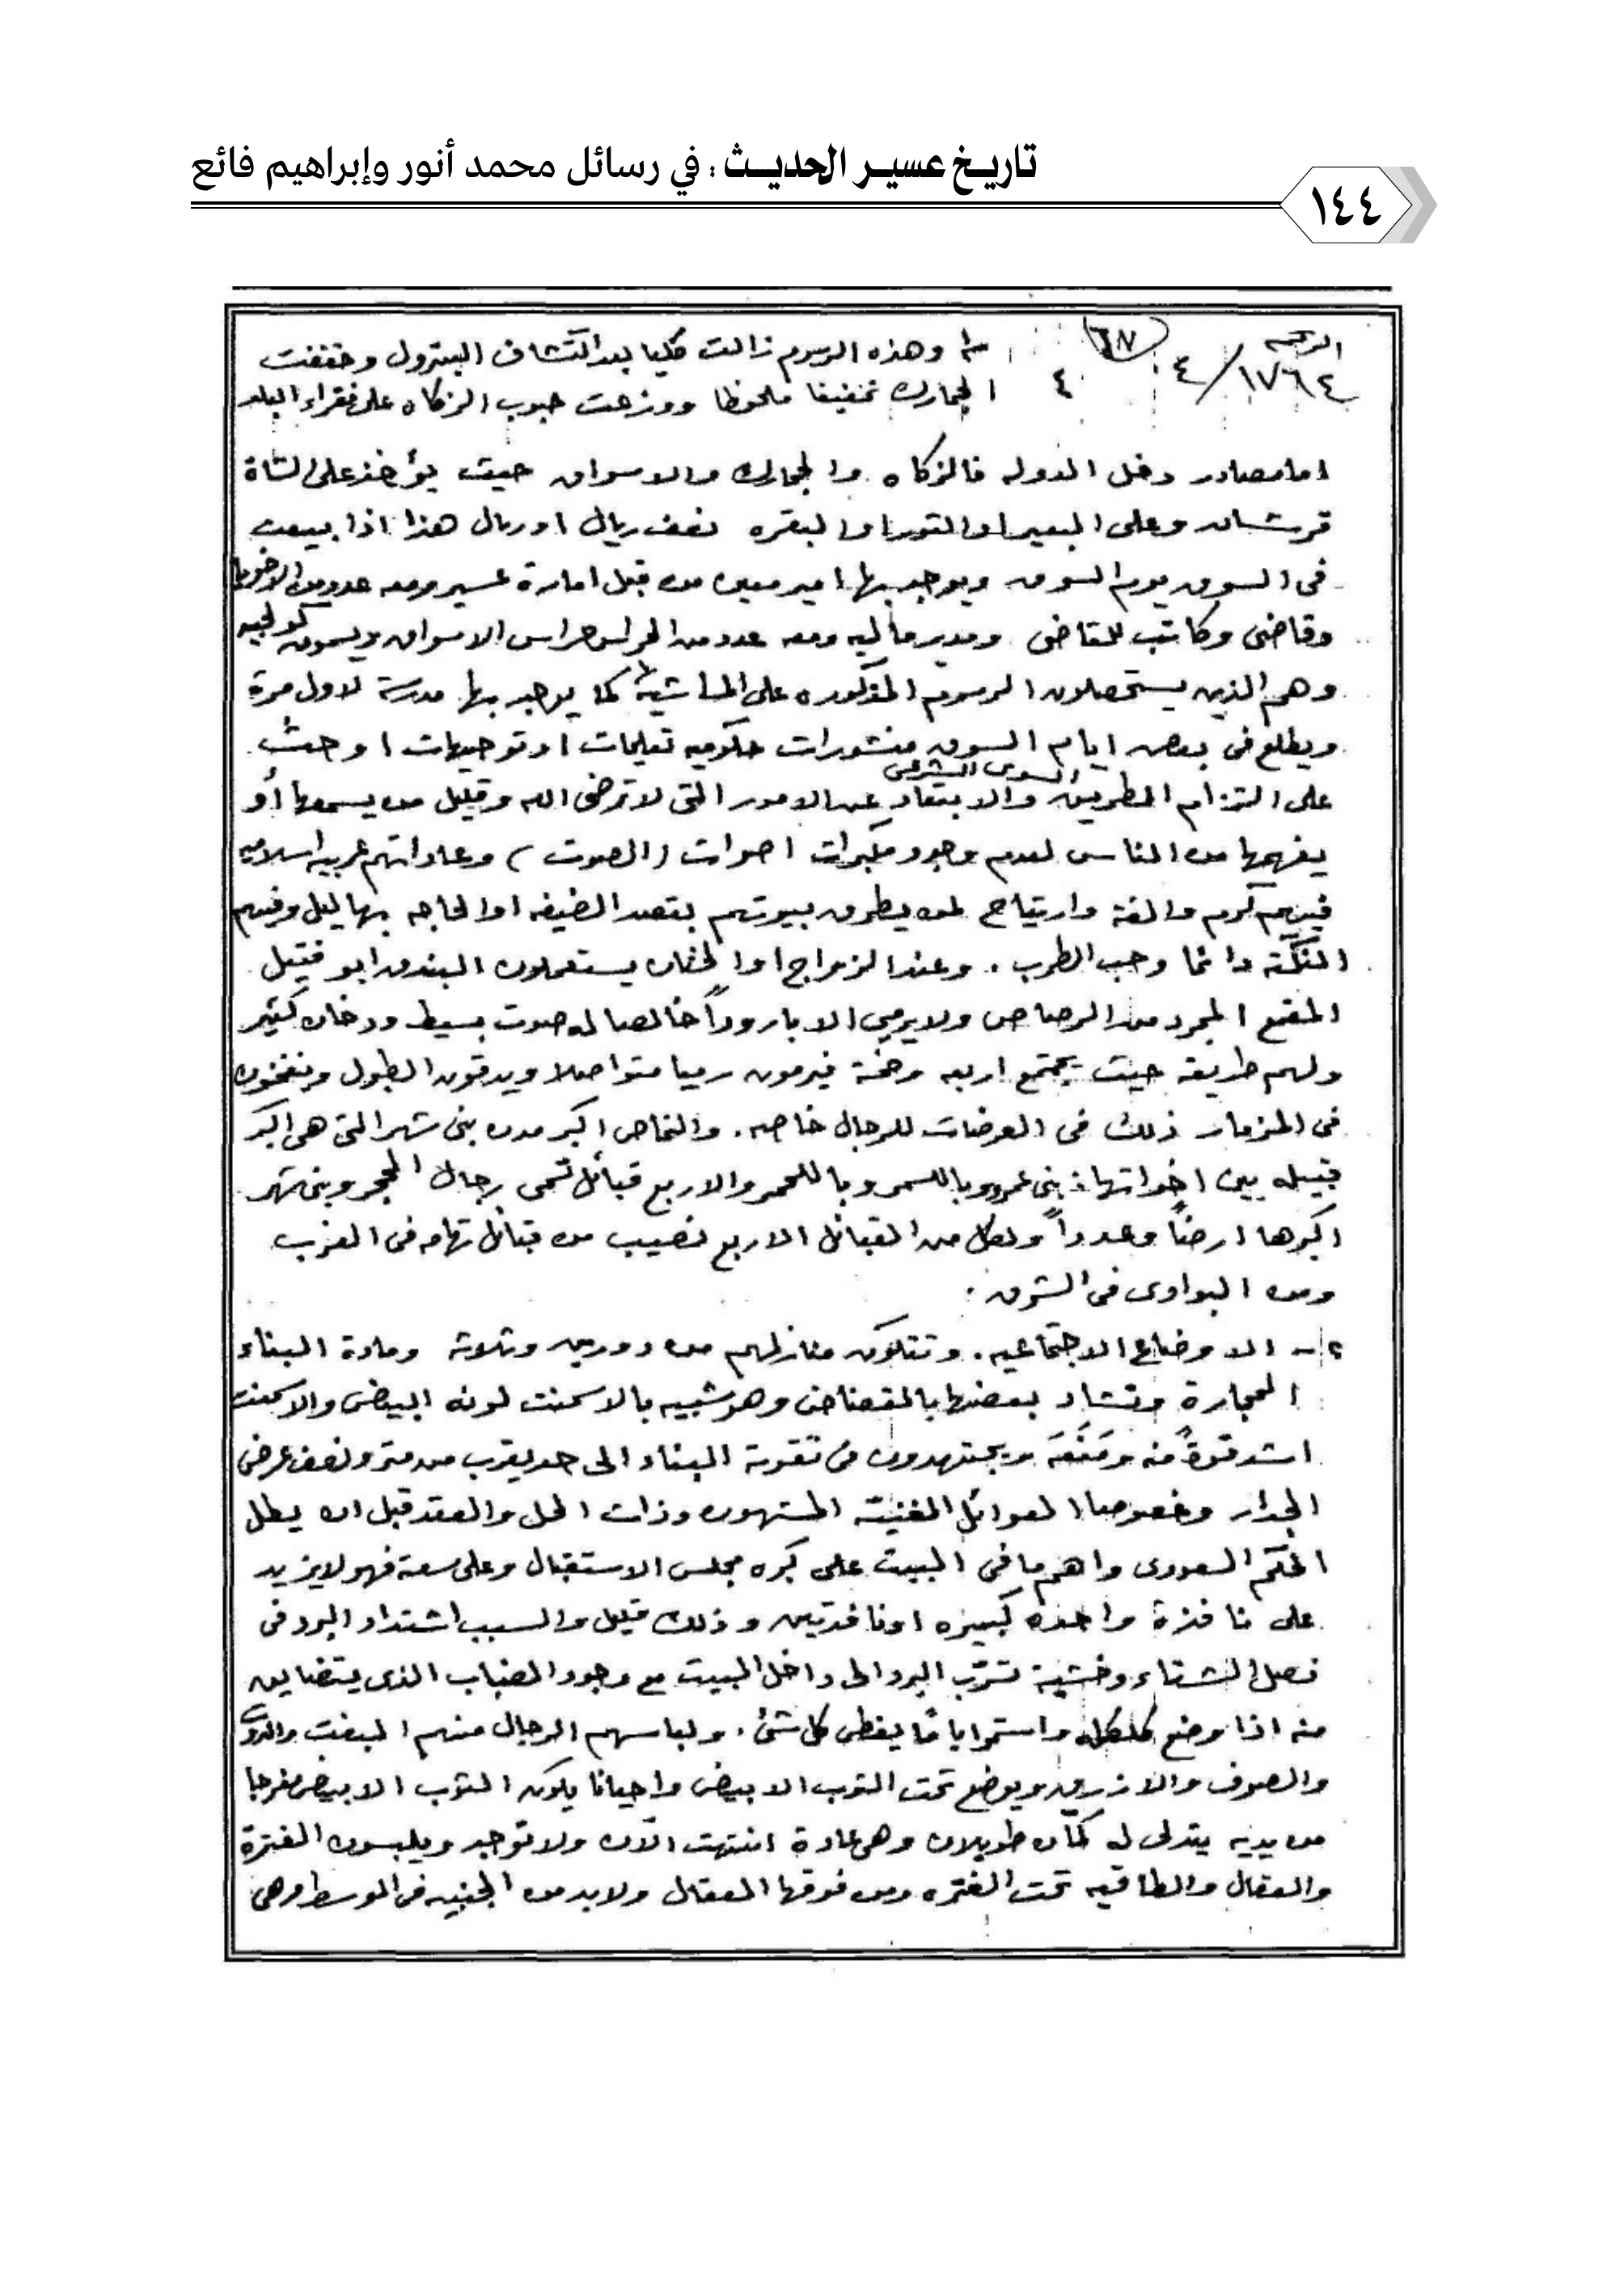 تاريخ عسير الحديث : في رسائل محمد أنور وإبراهيم فائع
١٤٤
١٧٦٤ / ٤
٦٧
٤
وهذه الرسوم زالت كليا بعد اكتشاف البترول وخففت
الجمارك تخفيفا ملحوظا ووزعت حبوب الزكاه على فقراء البلد
اما مصادر دخل الدوله فالزكاه والجمارك والاسواق حيث يؤخذ على الشاة
قرشان وعلى البعير او الثور او البقره نصف ريال او ريال هذا اذا بيعت
فى السوق يوم السوق ويوجد بها امير معين من قبل امارة عسير ومعه عدد من الاخويا
وقاضى وكاتب للقاضى ومدير ماليه ومعه عدد من الحراس حراس الاسواق ويسمون كولجيه
وهم الذين يستحصلون الرسوم المذكوره على الماشية كما يوجد بها مدرسة لاول مرة
ويطلع فى بعض ايام السوق منشورات حكوميه تعليمات او توجيهات او حث
على التزام الطريق السوى الشرعى والابتعاد عن الامور التى لا ترضى الله وقليل من يسمعها أو
يفهمها من الناس لعدم وجود مكبرات اصوات (الصوت) وعاداتهم عربيه اسلاميه
فيهم كرم والفة وارتياح لمن يطرق بيوتهم بقصد الضيفه او الحاجه بها ليل وفيهم
النكتة دائما وحب الطرب . وعند الزواج او الختان يستعملون البندق ابو فتيل
المقمع المجرد من الرصاص ولا يرمي الا باروداً خالصا له صوت بسيط ودخان كثير
ولهم طريقه حيث يجتمع اربعه وخمسة فيرمون رميا متواصلا ويدقون الطبول وينفخون
فى المزمار ذلك فى العرضات للرجال خاصه . والنماص اكبر مدن بنى شهر التى هى اكبر
قبيله بين اخواتها : بنى عمرو وباللسمر وباللحمر والاربع قبائل تسمى رجال الحجر وبنى شهر
اكبرها ارضاً وعدداً ولكل من القبائل الاربع نصيب من قبائل تهامه فى الغرب
ومن البوادى فى الشرق .
٢- الاوضاع الاجتماعيه . وتتكون منازلهم من دورين وثلاثه ومادة البناء
الحجارة وتشاد بعضها بالقضاض وهو شبيه بالاسمنت لونه ابيض والاسمنت
اشد قوة منه ومنعة ويجتهدون فى تقوية البناء الى حد يقرب من متر ونصف عرض
الجدار وخصوصا العوائل الغنيه المشهوره وذات الحل والعقد قبل ان يطل
الحكم السعودى واهم ما فى البيت على كبره مجلس الاستقبال وعلى سعته فهو لا يزيد
على نافذة واحده كبيره او نافذتين وذلك قليل والسبب اشتداد البرد فى
فصل الشتاء وخشية تسرب البرد الى داخل البيت مع وجود الضباب الذى يتضايق
منه اذا وضع كلكله واستمر اياما يغطى كل شئ . ولباسهم الرجال منهم البفت
والصوف والازريق ويوضع تحت الثوب الابيض واحيانا يكون الثوب الابيض مفرجا
من يديه يتدلى له كمان طويلان وهى عادة انتهت الآن ولا توجد ويلبسون الغترة
والعقال والطاقيه تحت الغتره ومن فوقها العقال ولا بد من الجنبيه فى الوسط وهى